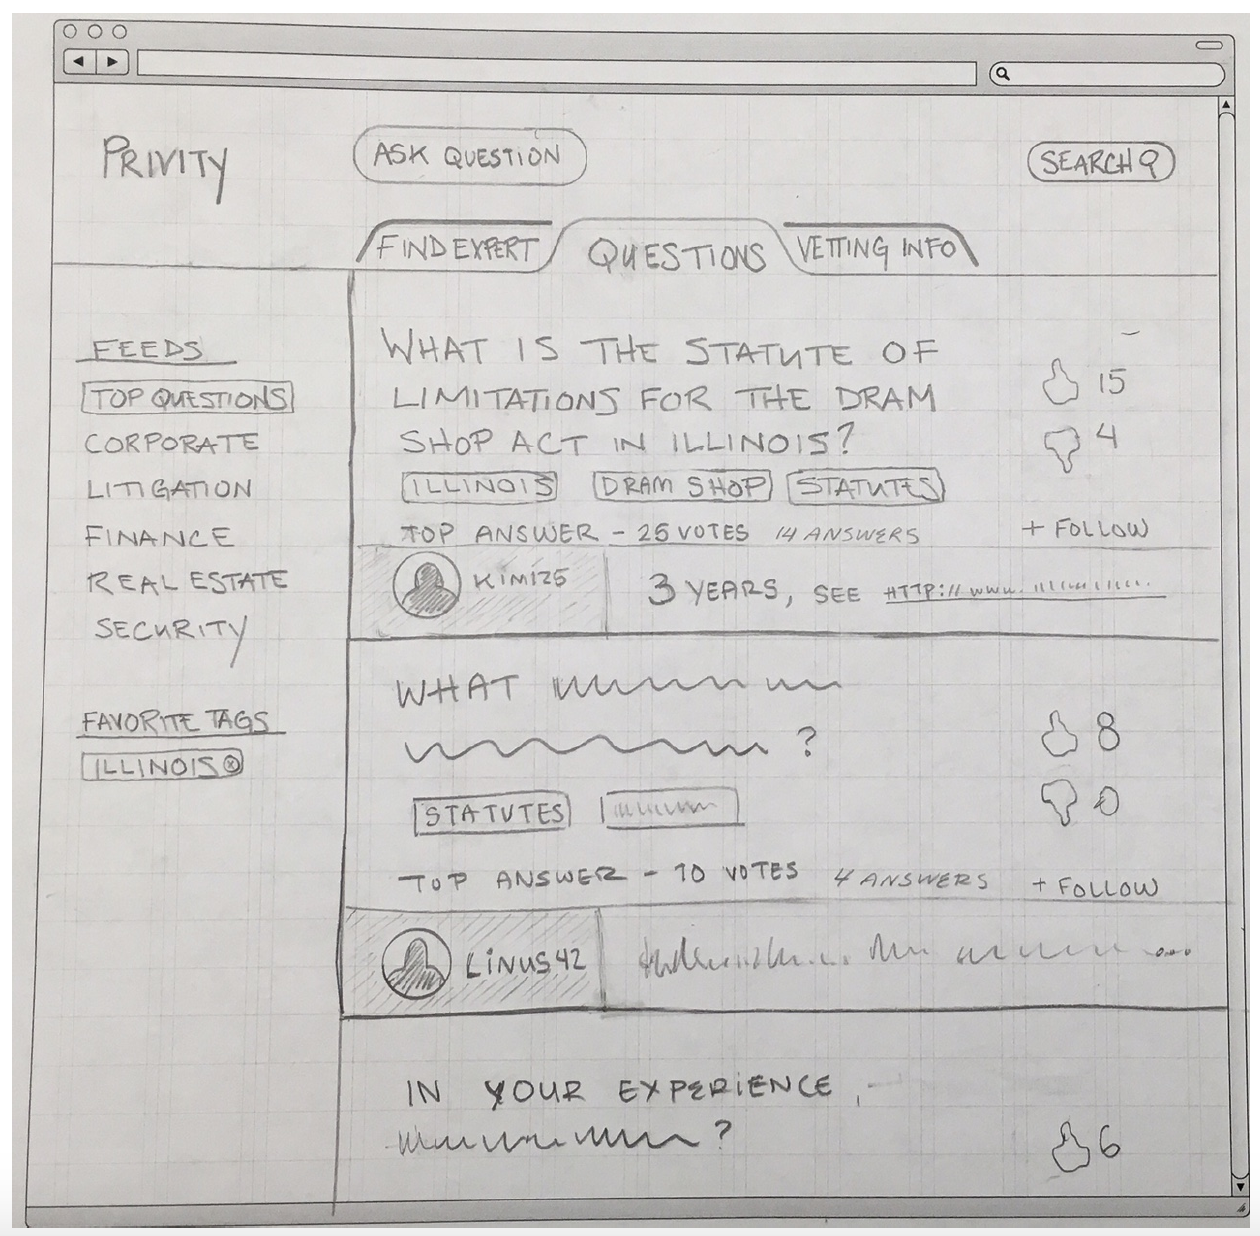 PRIVITY
ASK QUESTION
SEARCH
FIND EXPERT
QUESTIONS
VETTING INFO
FEEDS
TOP QUESTIONS
CORPORATE
LITIGATION
FINANCE
REAL ESTATE
SECURITY
FAVORITE TAGS
ILLINOIS ⓧ
WHAT IS THE STATUTE OF
LIMITATIONS FOR THE DRAM
SHOP ACT IN ILLINOIS?
15
4
ILLINOIS DRAM SHOP STATUTES
TOP ANSWER - 25 VOTES 14 ANSWERS + FOLLOW
KIM125
3 YEARS, SEE HTTP://WWW.
WHAT
?
8
0
STATUTES
TOP ANSWER - 10 VOTES 4 ANSWERS + FOLLOW
LINUS42
...
IN YOUR EXPERIENCE,
?
6